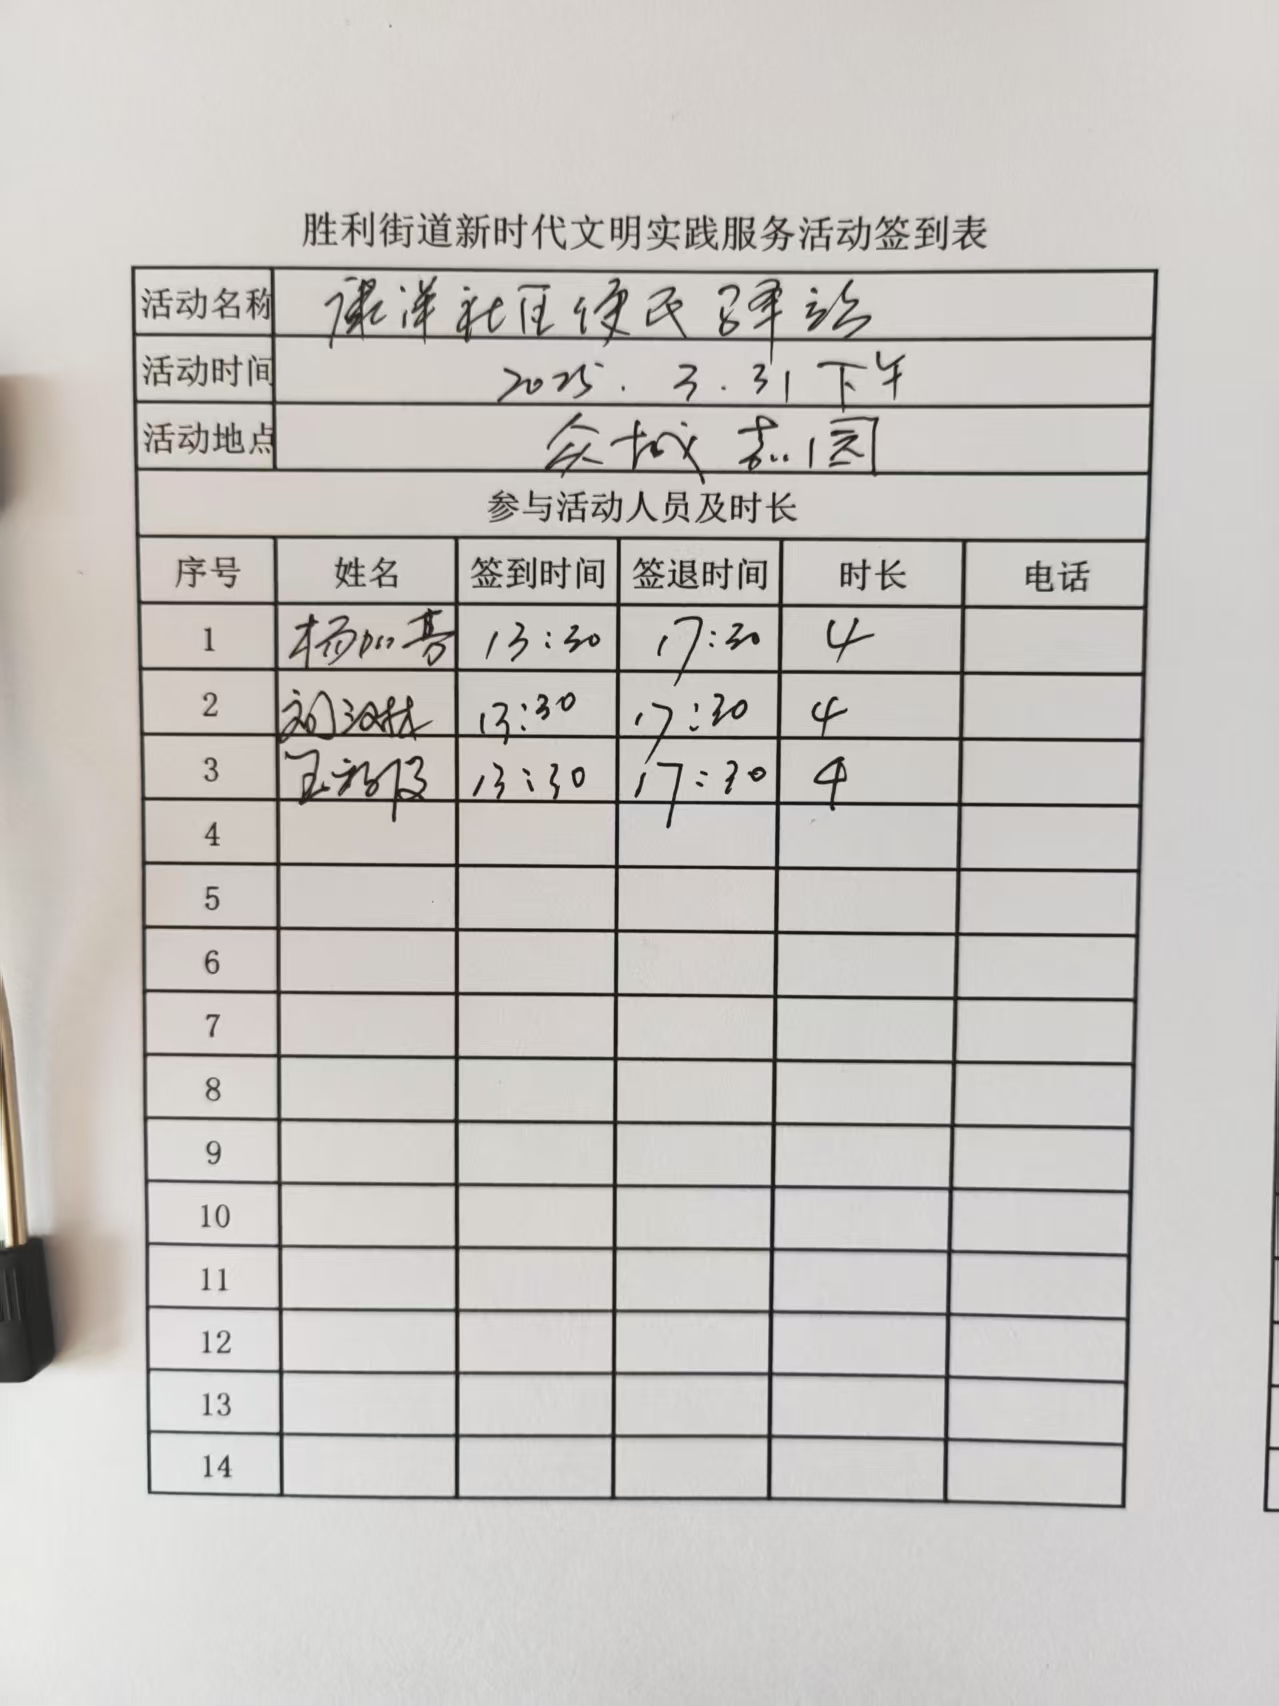 胜利街道新时代文明实践服务活动签到表
活动名称 康洋社区便民驿站
活动时间 2025.3.31下午
活动地点 众城嘉园
参与活动人员及时长
序号 姓名 签到时间 签退时间 时长 电话
1 杨 13:30 17:30 4
2 刘汉林 13:30 17:30 4
3 王 13:30 17:30 4
4
5
6
7
8
9
10
11
12
13
14